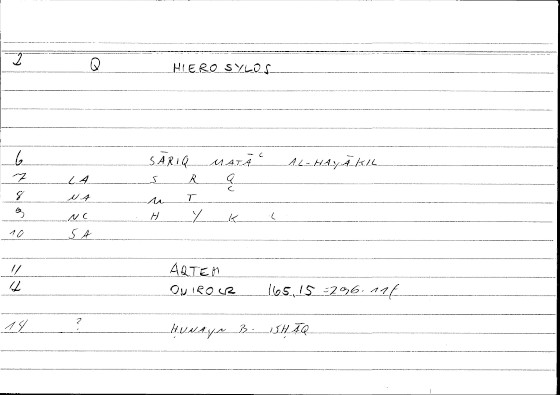 2 Q HIEROSYLOS
6 SĀRIQ MATĀʿ AL-HAYĀKIL
7 LA S R Q
8 NA M T ʿ
9 NC H Y K L
10 SA
11 ARTEM
4 ONIROCR 165,15 =296.11f
14 ? ḤUNAYN B. ISḤĀQ